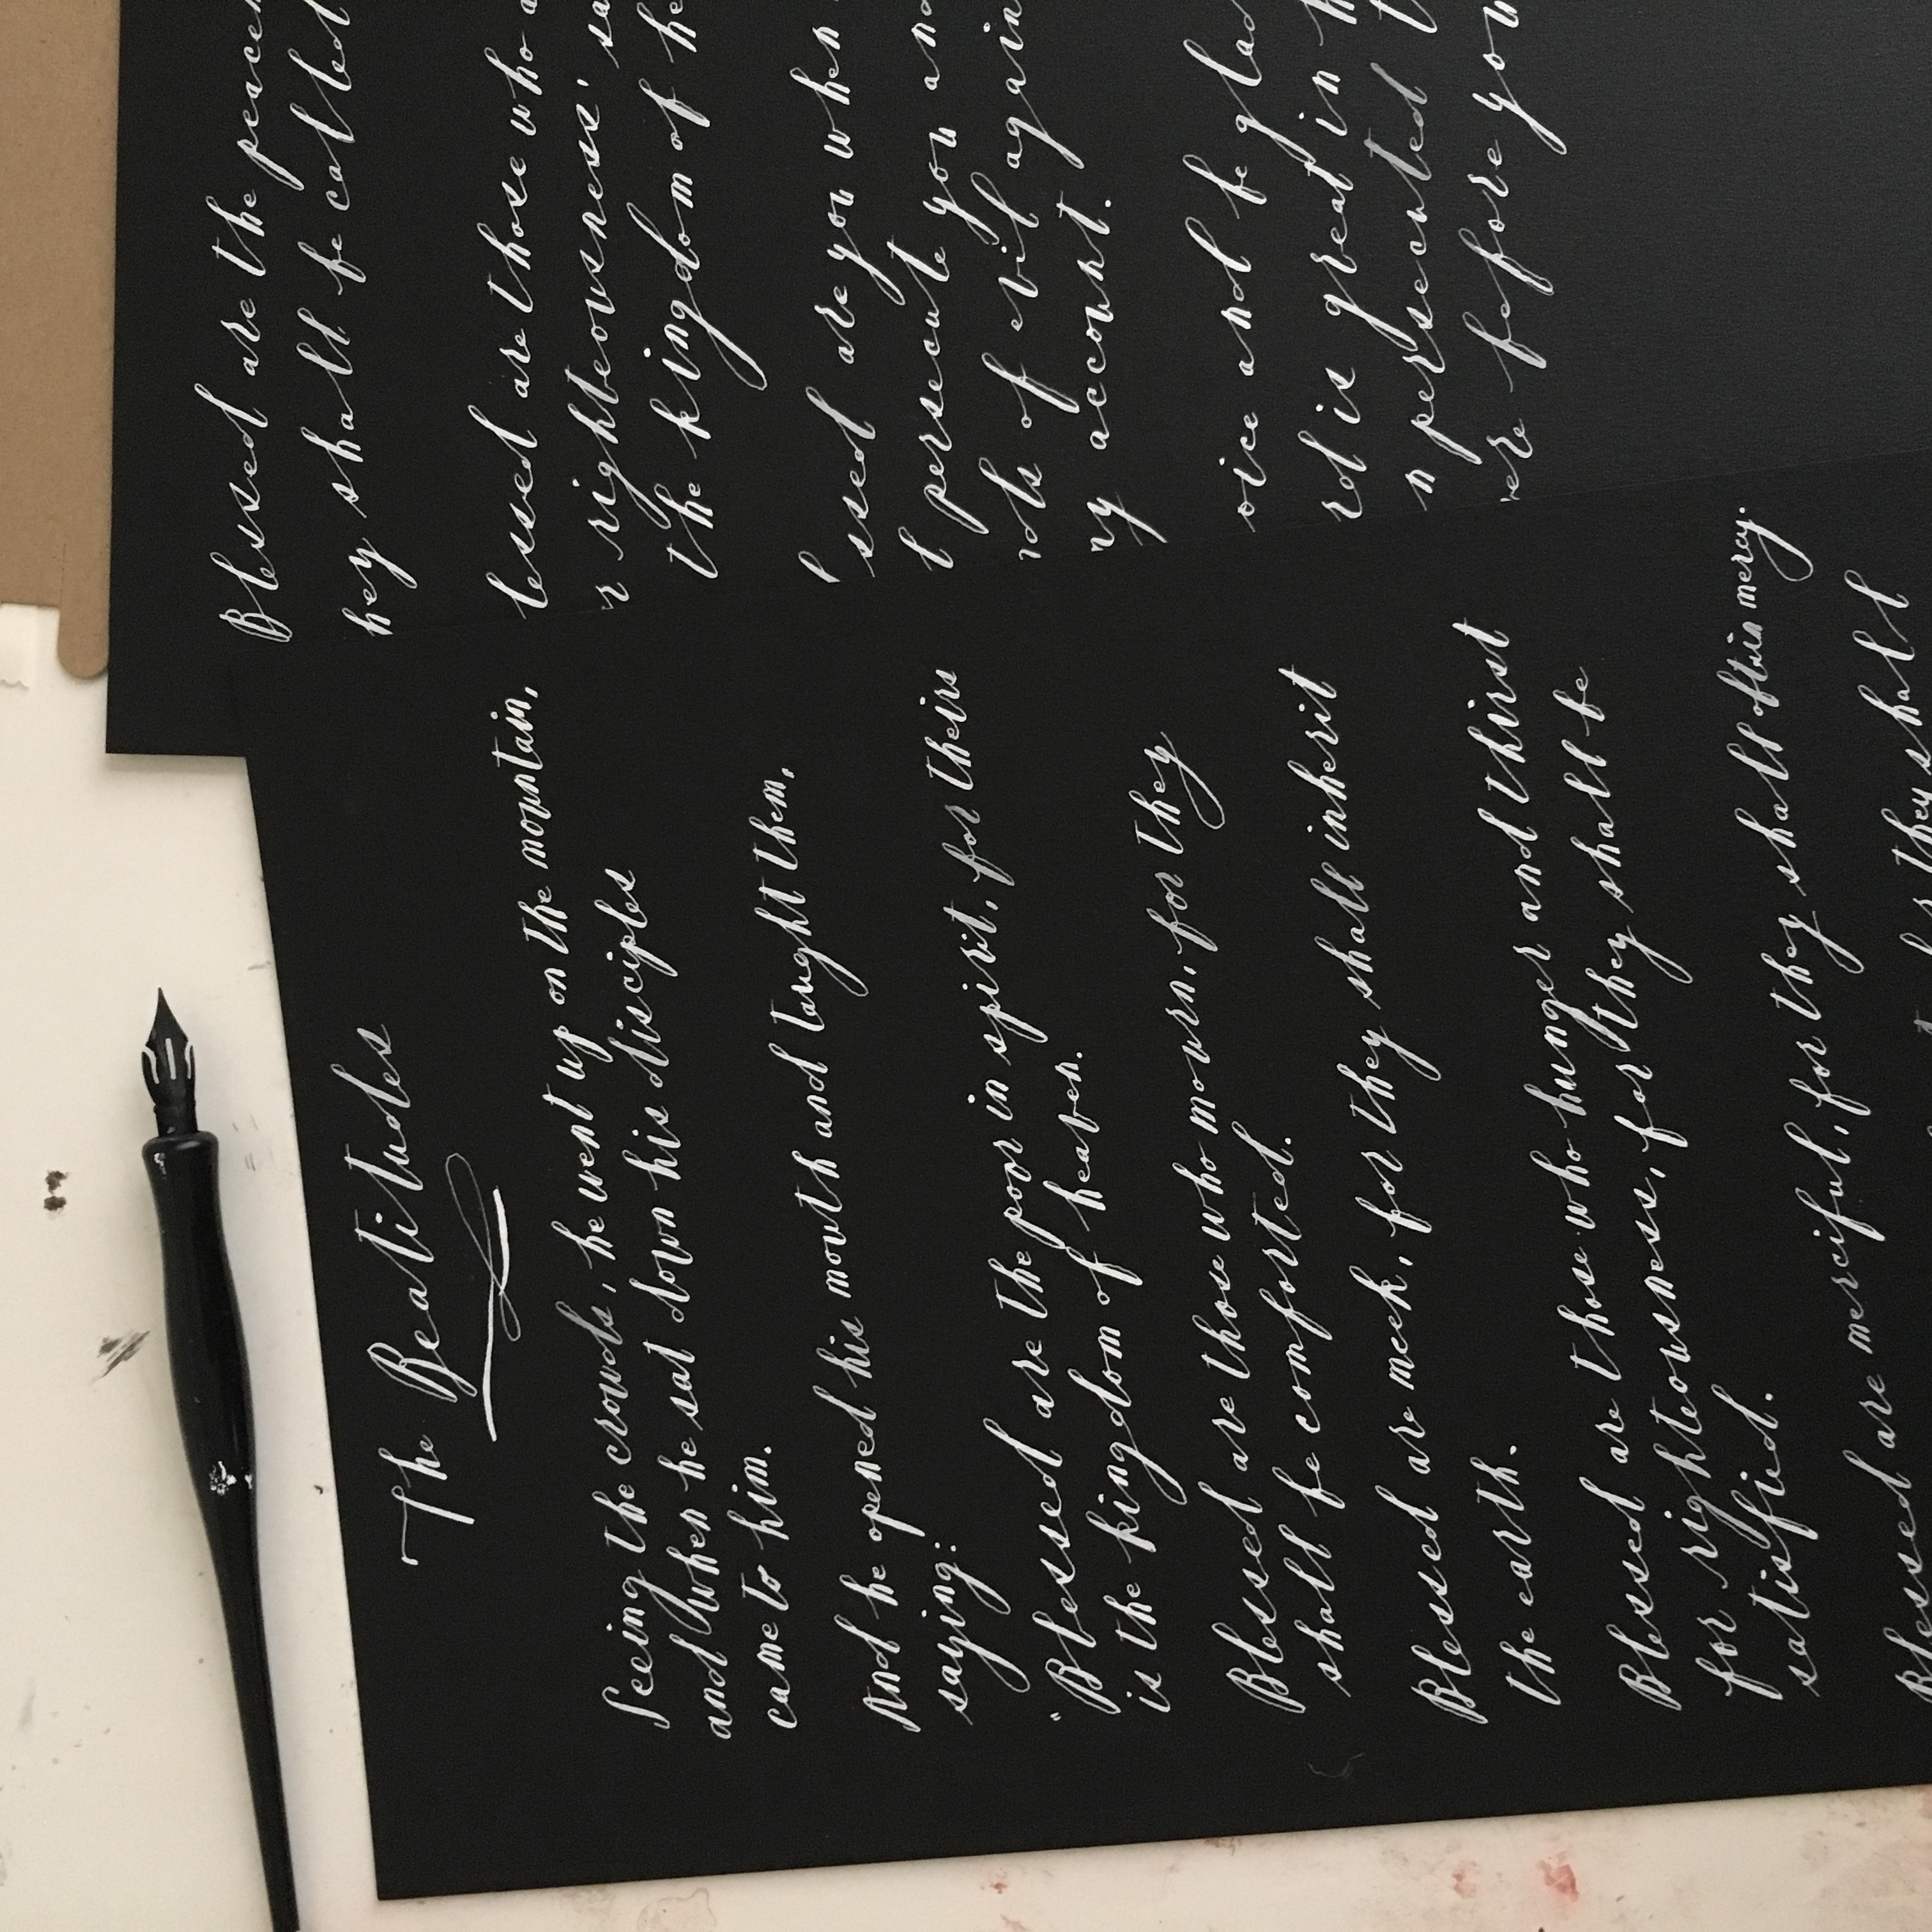 The Beatitudes
Seeing the crowds, he went up on the mountain,
and when he sat down his disciples
came to him.
And he opened his mouth and taught them,
saying:
"Blessed are the poor in spirit, for theirs
is the kingdom of heaven.
Blessed are those who mourn, for they
shall be comforted.
Blessed are meek, for they shall inherit
the earth.
Blessed are those who hunger and thirst
for righteowsness, for they shall be
satisfied.
Blessed are merciful, for they shall obtain mercy.
Blessed they shall
Blessed are the peacem
hey shall be called
lessed are those who a
r righteousness' sa
the kingdom of he
ssed are you when
d persecute you and
nds of evil again
ny account.
oice and be glad
rd is great in h
n persecuted t
ere before you